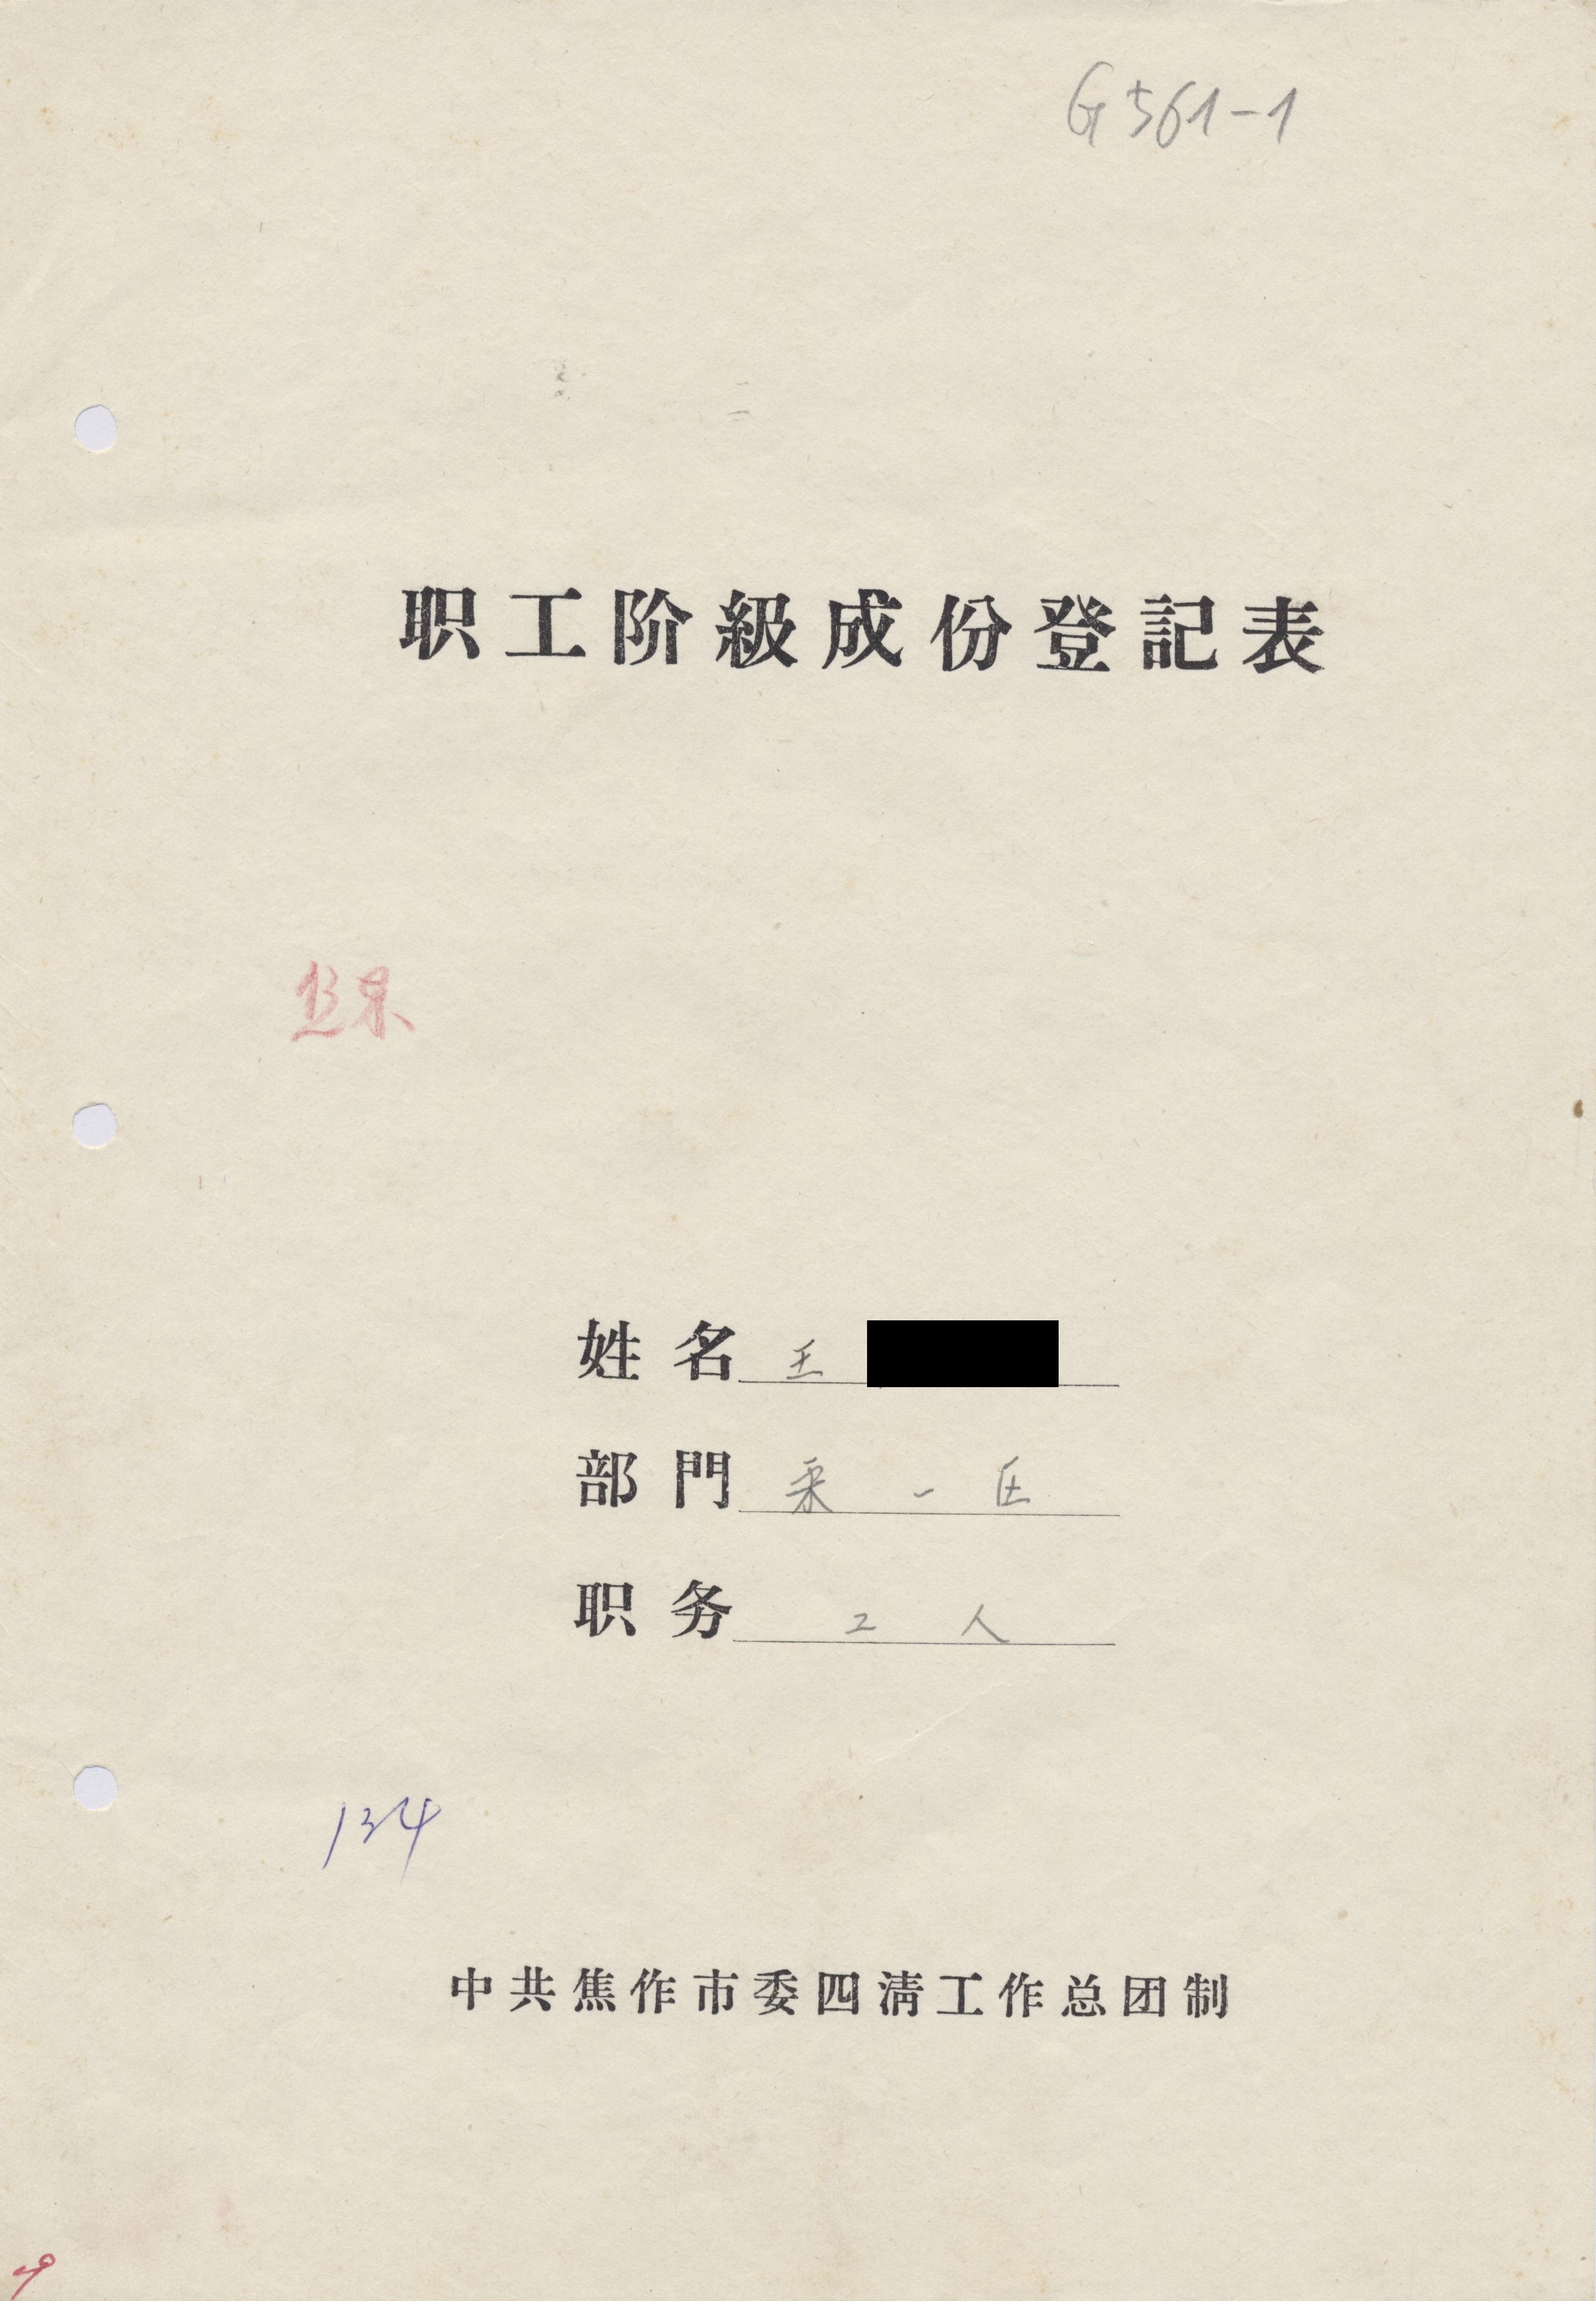 G561-1
职工阶級成份登記表
姓名 王
部門 采一区
职务 工人
134
中共焦作市委四清工作总团制